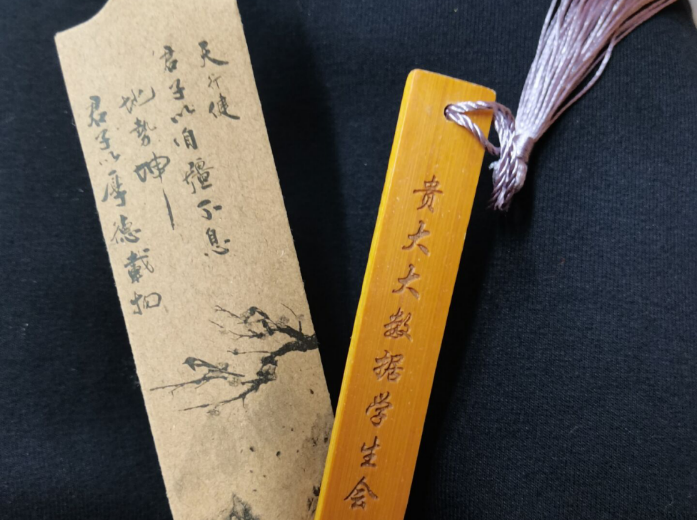 天行健
君子以自强不息
地势坤
君子以厚德載物
贵大大数据学生会